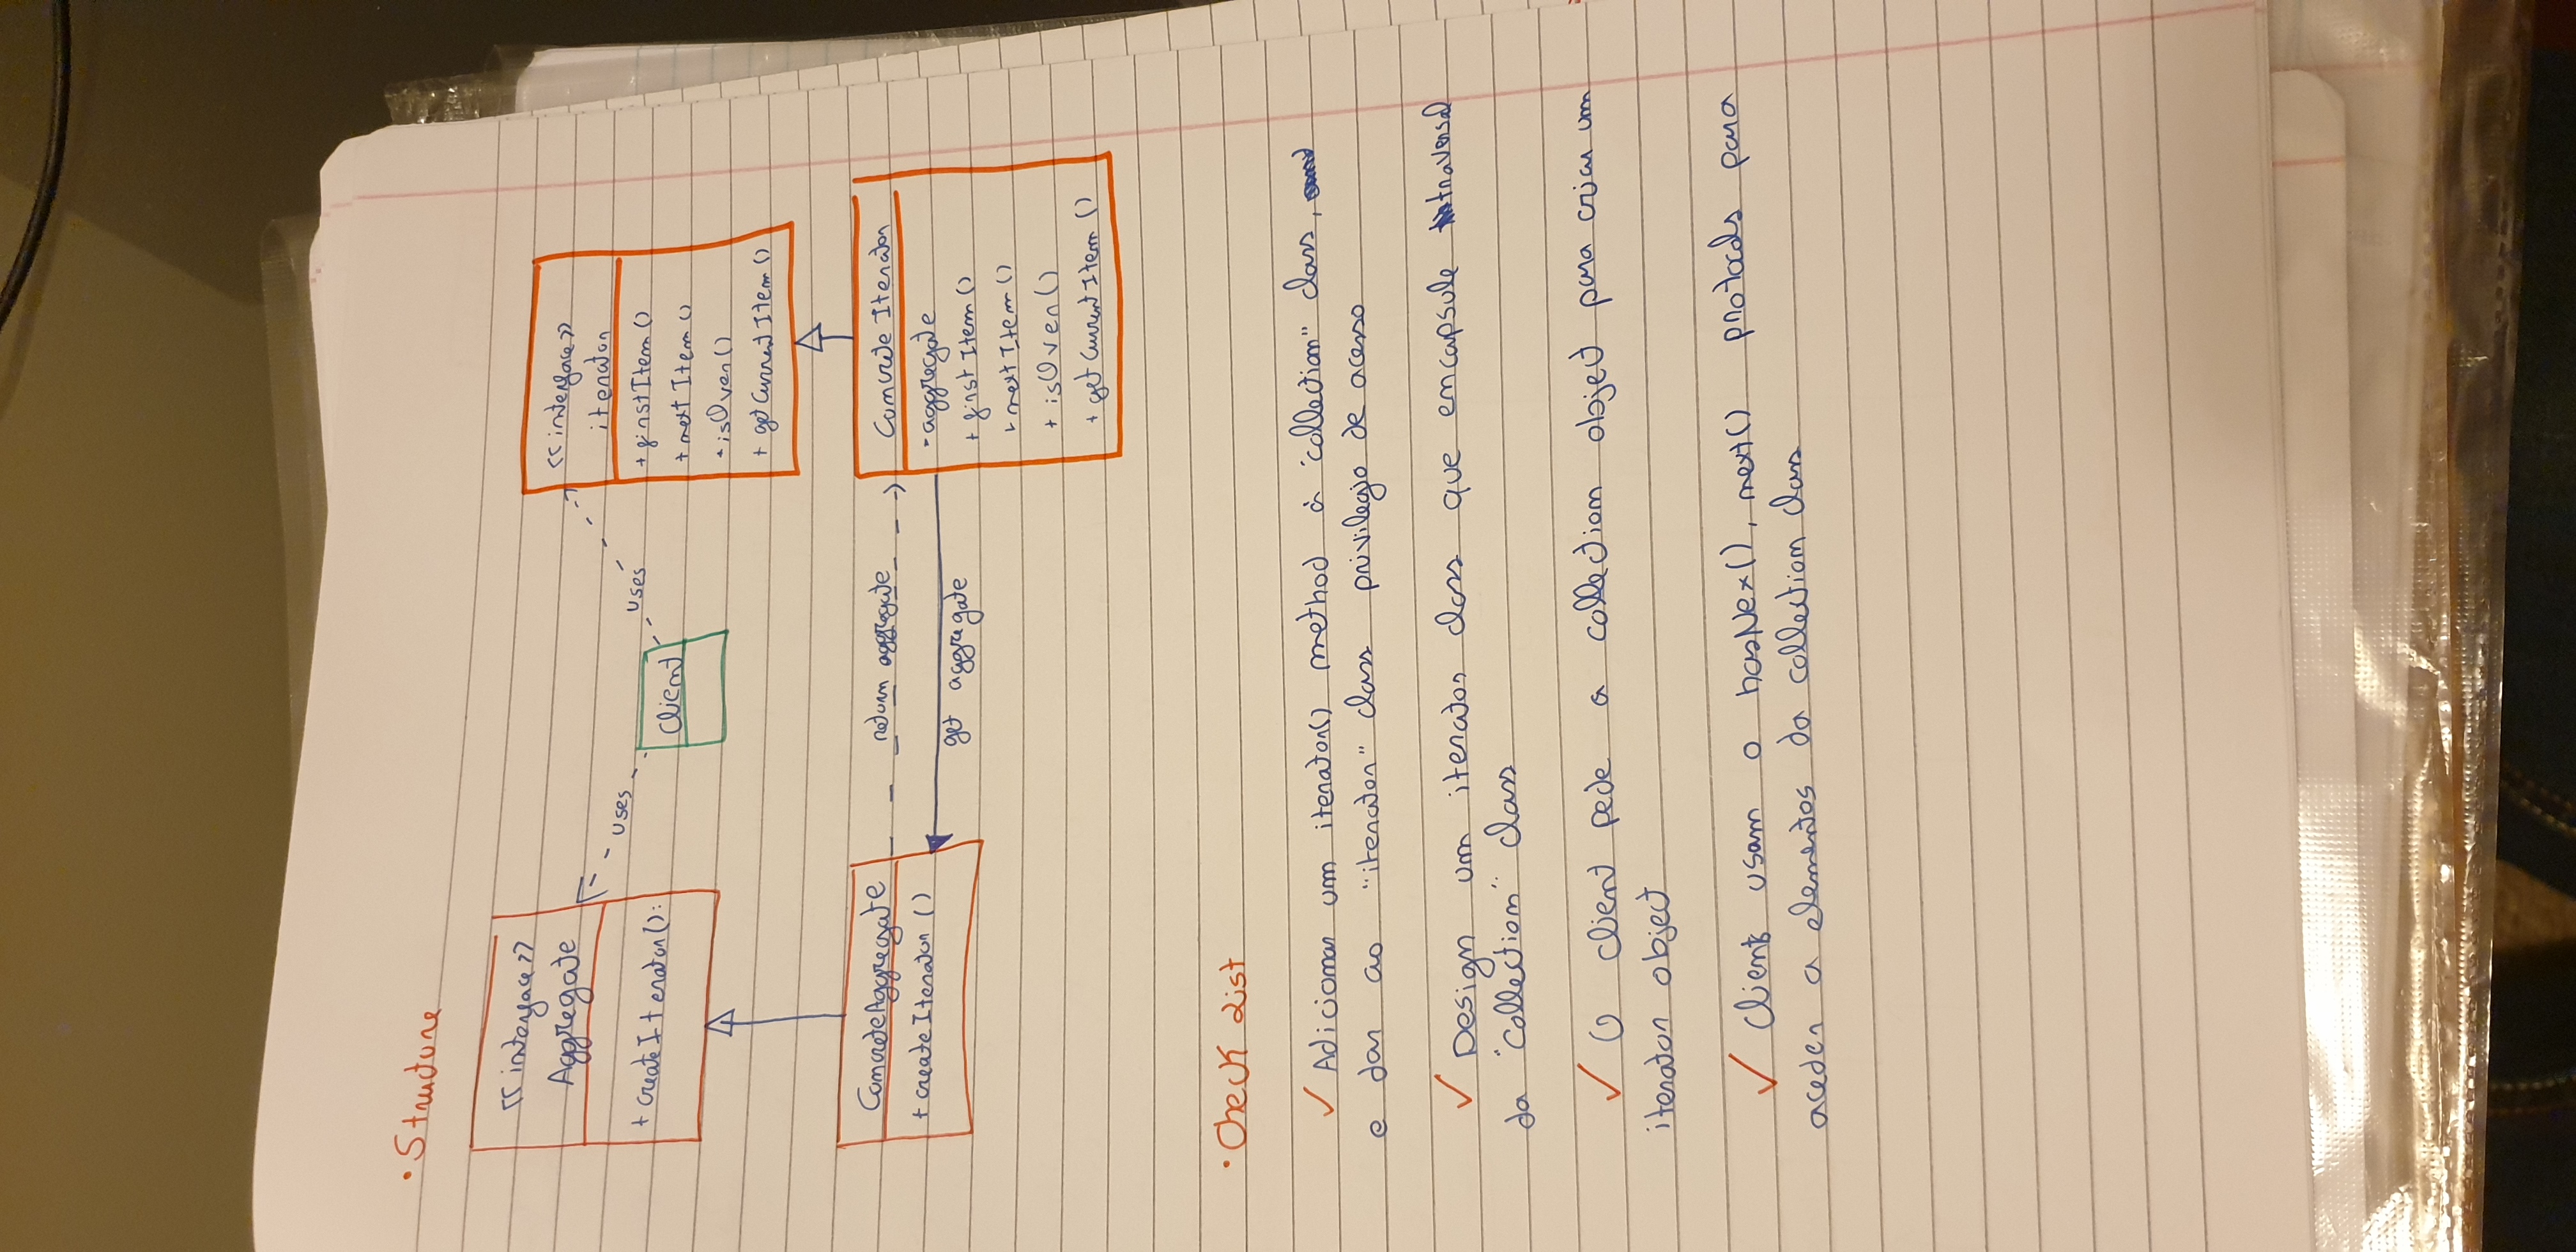 • Structure
<<interface>>
Aggregate
+ createIterator():
uses
Client
uses
<<interface>>
iterator
+ firstItem()
+ nextItem()
+ isOver()
+ getCurrentItem()
ConcreteAggregate
+ createIterator()
return aggregate
get aggregate
Concrete Iterator
- aggregate
+ firstItem()
+ nextItem()
+ isOver()
+ getCurrentItem()
• Check List
✓ Adicionar um iterator() method à "collection" class,
e dar ao "iterator" class privilegio de acesso
✓ Design um iterator class que encapsule traversal
da "collection" class
✓ O client pede a collection object para criar um
iterator object
✓ Clients usam o hasNex(), next() protocols para
aceder a elementos da collection class